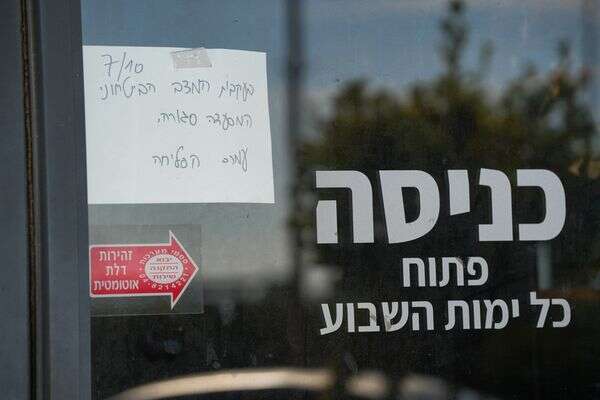 7/10
בעקבות המצב הביטחוני
המסעדה סגורה.
עמכם הסליחה
כניסה
פתוח
כל ימות השבוע
זהירות
דלת
אוטומטית
יבוא
התקנה
שירות